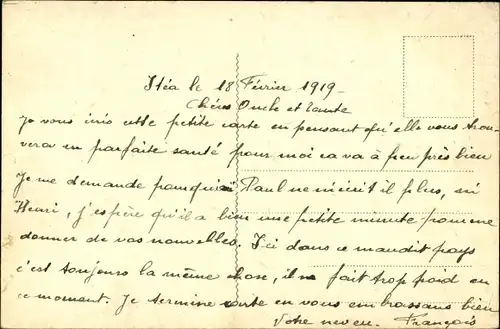 Itéa le 18 Février 1919-
Chers Oncle et Tante
Je vous écris cette petite carte en pensant qu'elle vous trou-
vera en parfaite santé pour moi ca va à peu près bien
Je me demande pourquoi Paul ne m'écrit il plus, ni
Henri, j'espère qu'il a bien une petite minute pour me
donner de vos nouvelles. Ici dans ce maudit pays
c'est toujours la même chose, il fait trop froid en
ce moment. Je termine carte en vous embrassant bien
Votre neveu. François